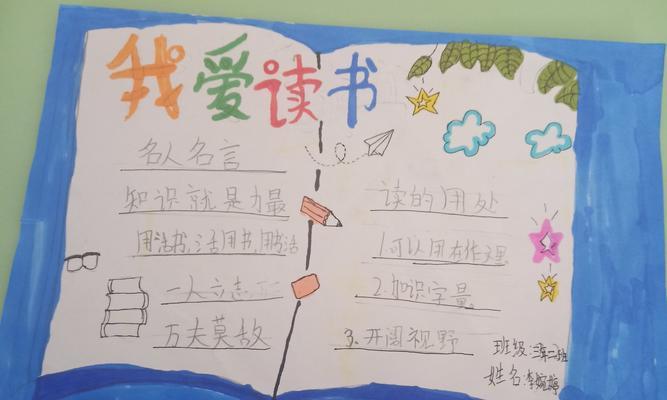 我爱读书
名人名言
知识就是力最
用活书,活用书,用书活
一人立志
万夫莫敌
读的用处
1.可以用在作文里
2.加识字量
3.开阔视野
班级:三年二班
姓名:李婉婷